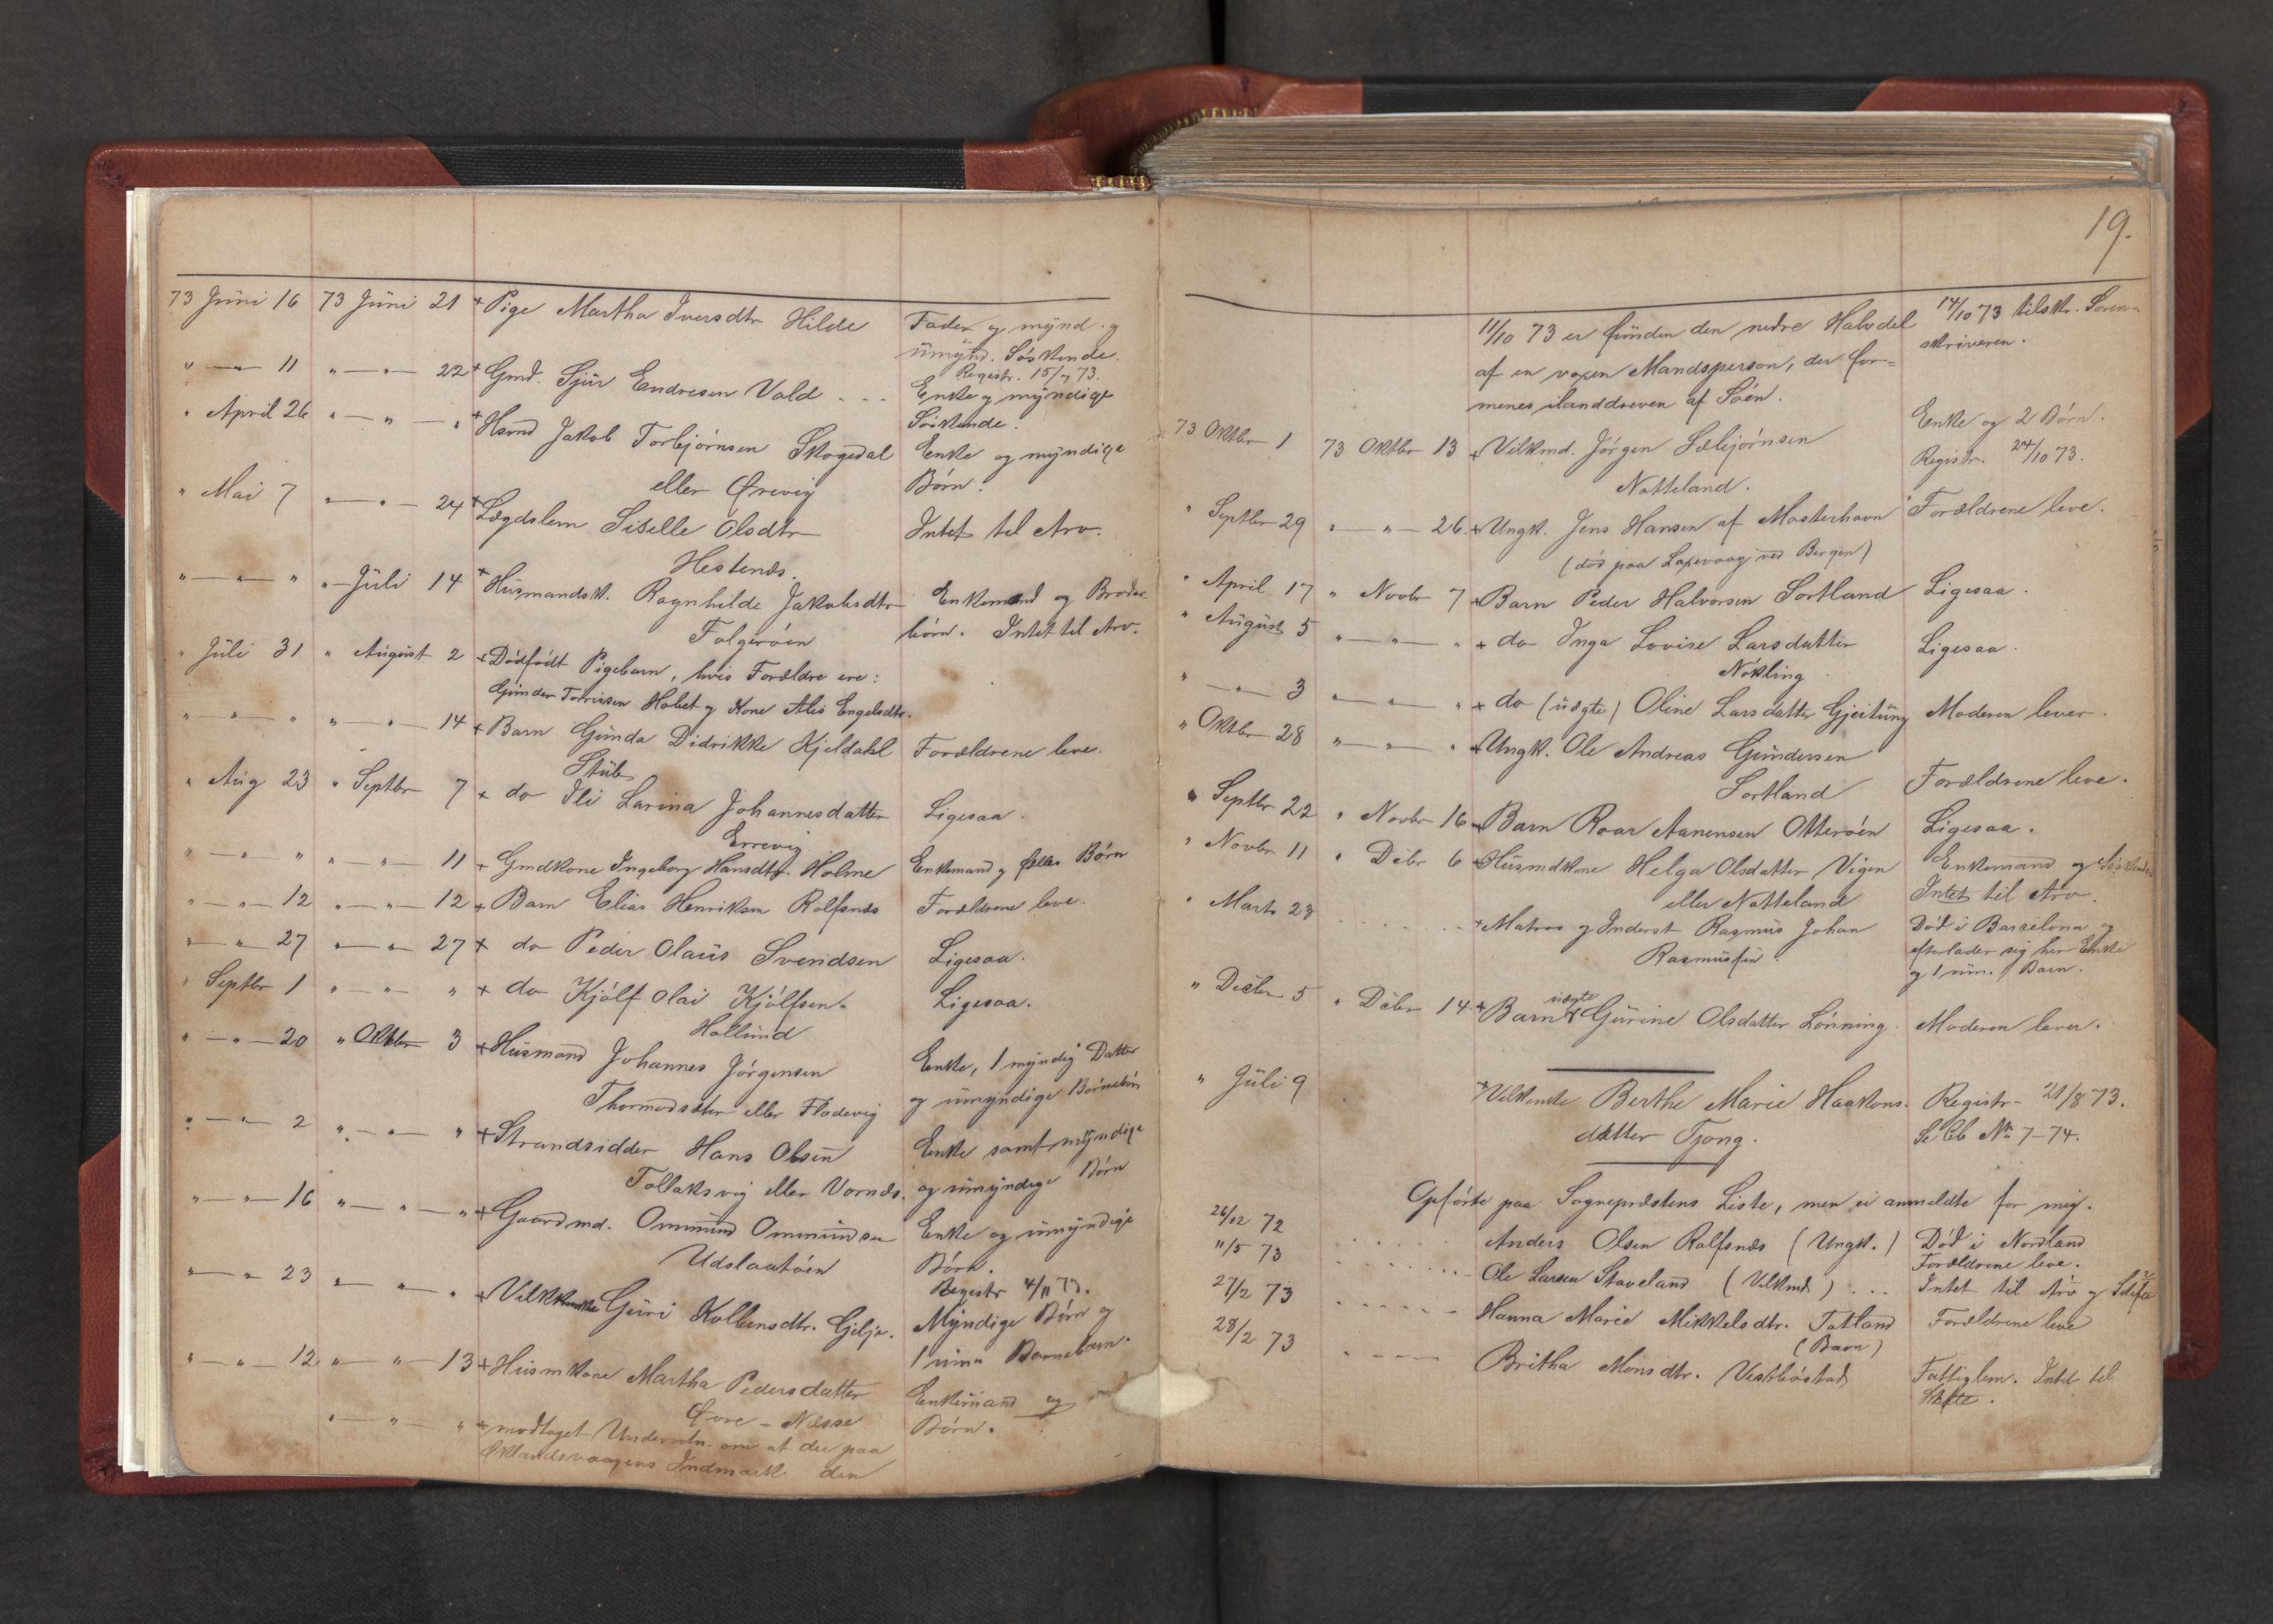 73 Juni 16 73 Juni 21 + Pige Martha Iversdtr Hilde Fader og mynd. og
umynd. Söskende.
Registr. 15/7 73.
" — " 11 " — " — 22 + Gmd. Sjur Endresen Vold . . . Enke og myndige
Söskende.
" April 26 " — " — " + Hsmd Jakob Torbjörnsen Skogedal Enke og myndige
eller Örevig Börn.
" Mai 7 " — " — 24 + Lægdslem Siselle Olsdtr Intet til Arv.
Hestenæs.
" — " — " " — Juli 14 + Husmandsk. Ragnhilde Jakobsdtr Enkemand og Broder
Folgeröen börn. Intet til Arv.
" Juli 31 " August 2 + Dödfödt Pigebarn, hvis Forældre ere:
Gunder Torrissen Habet og Kone Alis Engelsdtr.
" — " — " " — " — 14 + Barn Gunda Didrikke Kjeldahl Forældrene leve.
Stub
" Aug 23 " Septbr 7 + do Ili Larina Johannesdatter Ligesaa.
Errevig
" — " — " " — " — 11 + Gmdkone Ingeborg Hansdtr. Holme Enkemand og fælles Börn
" — " — 12 " — " — 12 + Barn Elias Henriksen Rolfsnæs Forældrene leve.
" — " 27 " — " — 27 + do Peder Olaus Svendsen Ligesaa.
" Septbr 1 " — " — " + do Kjölf Olai Kjölfsen. Ligesaa.
Hollund
" — " — 20 " Oktbr 3 + Husmand Johannes Jörgensen Enke, 1 myndig Datter
Thormodsæter eller Fladevig og umyndige Börnebörn
" — " — 2 " — " — " + Strandsidder Hans Olsen Enke samt myndige
Tollaksvig eller Vornæs. og umyndige Börn
" — " — 16 " — " — " + Gaardmd. Ommund Ommundsen Enke og umyndige
Udslaatöen Börn.
Registr 4/11 73.
" — " 23 " — " — " + Vilkkenke Guri Kolbensdtr. Gilje. Myndige Börn og
1 umn Barnebarn.
" — " — 12 " — " — 13 + Husmkone Martha Pedersdatter Enkemand og
Övre - Næsse Börn.
" — " — " + modtaget Underretn. om at der paa
Öklandsvaagens Indmark den
19.
11/10 73 er funden den nedre Halvdel 14/10 73 tilskr. Soren-
af en voxen Mandsperson, der for= skriveren.
menes ilanddreven af Söen.
73 Oktbr 1 73 Oktbr 13 + Vilkmd. Jörgen Sæbjörnsen Enke og 2 Börn.
Notteland. Registr. 24/10 73.
" Septbr 29 " — " — 26. + Ungk. Jens Hansen af Mosterhavn Forældrene leve.
(död paa Laxevaag ved Bergen)
" April 17 " Novbr 7 + Barn Peder Halvorsen Sortland Ligesaa.
" August 5 " — " — " + do Inga Lovise Larsdatter Ligesaa.
Nökling
" — " — 3 " — " — " + do (uægte) Oline Larsdatter Gjeitung Moderen lever.
" Oktbr 28 " — " — " + Ungk. Ole Andreas Gundersen
Sortland Forældrene leve.
" Septbr 22 " Novbr 16 + Barn Roar Aanensen Otteröen Ligesaa.
" Novbr 11 " Debr 6 + Husmdkone Helga Olsdatter Vigen Enkemand og Söskende
eller Notteland Intet til Arv.
" Marts 23 . . . . . . + Matros og Inderst Rasmus Johan Död i Barselona og
Rasmussen efterlader sig her Enke
og 1 um. Barn.
" Decbr 5 " Debr 14 + Barn uægte Gurine Olsdatter Lönning. Moderen lever.
" Juli 9 + Vilkenke Berthe Marie Haakons- Registr. 21/8 73.
datter Tjong. Se Cb No 7-74.
Opförte paa Sognepræstens Liste, men ei anmeldte for mig.
26/12 72 . . . . . . Anders Olsen Rolfsnæs (Ungk.) Död i Nordland
Forældrene leve.
11/5 73 . . . . . . Ole Larsen Staveland (Vilkmd) . . . Intet til Arv og Skifte
27/2 73 . . . . . . Hanna Marie Mikkelsdtr. Totland Forældrene leve
(Barn)
28/2 73 . . . . Britha Monsdtr. Vestböstad Fattiglem. Intet til
Skifte.